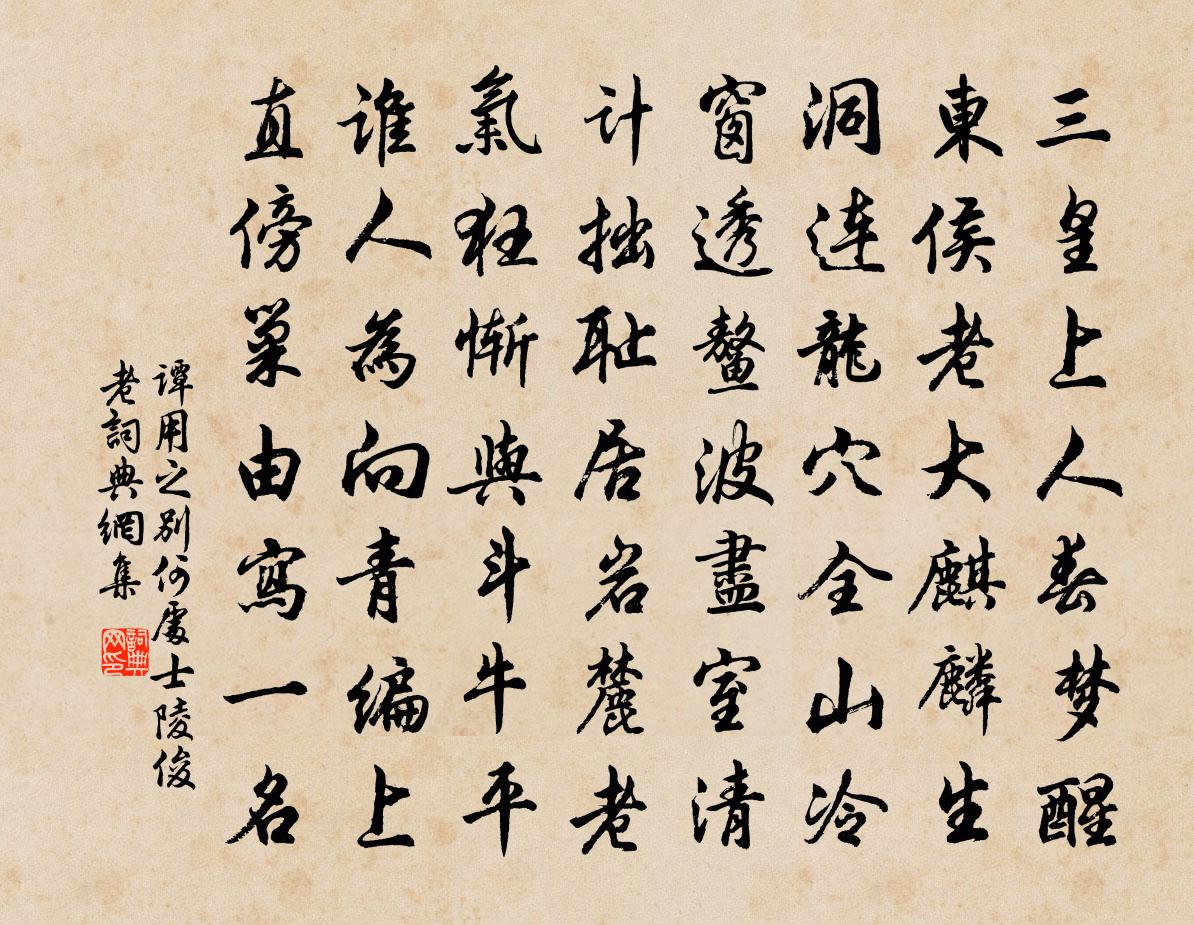 三皇上人春梦醒
東侯老大麒麟生
洞連龍穴全山冷
窗透鳌波盡室清
计拙耻居岩麓老
氣狂惭與斗牛平
谁人為向青编上
直傍巢由寫一名
谭用之别何處士陵俊
老詞典網集
詞典网印